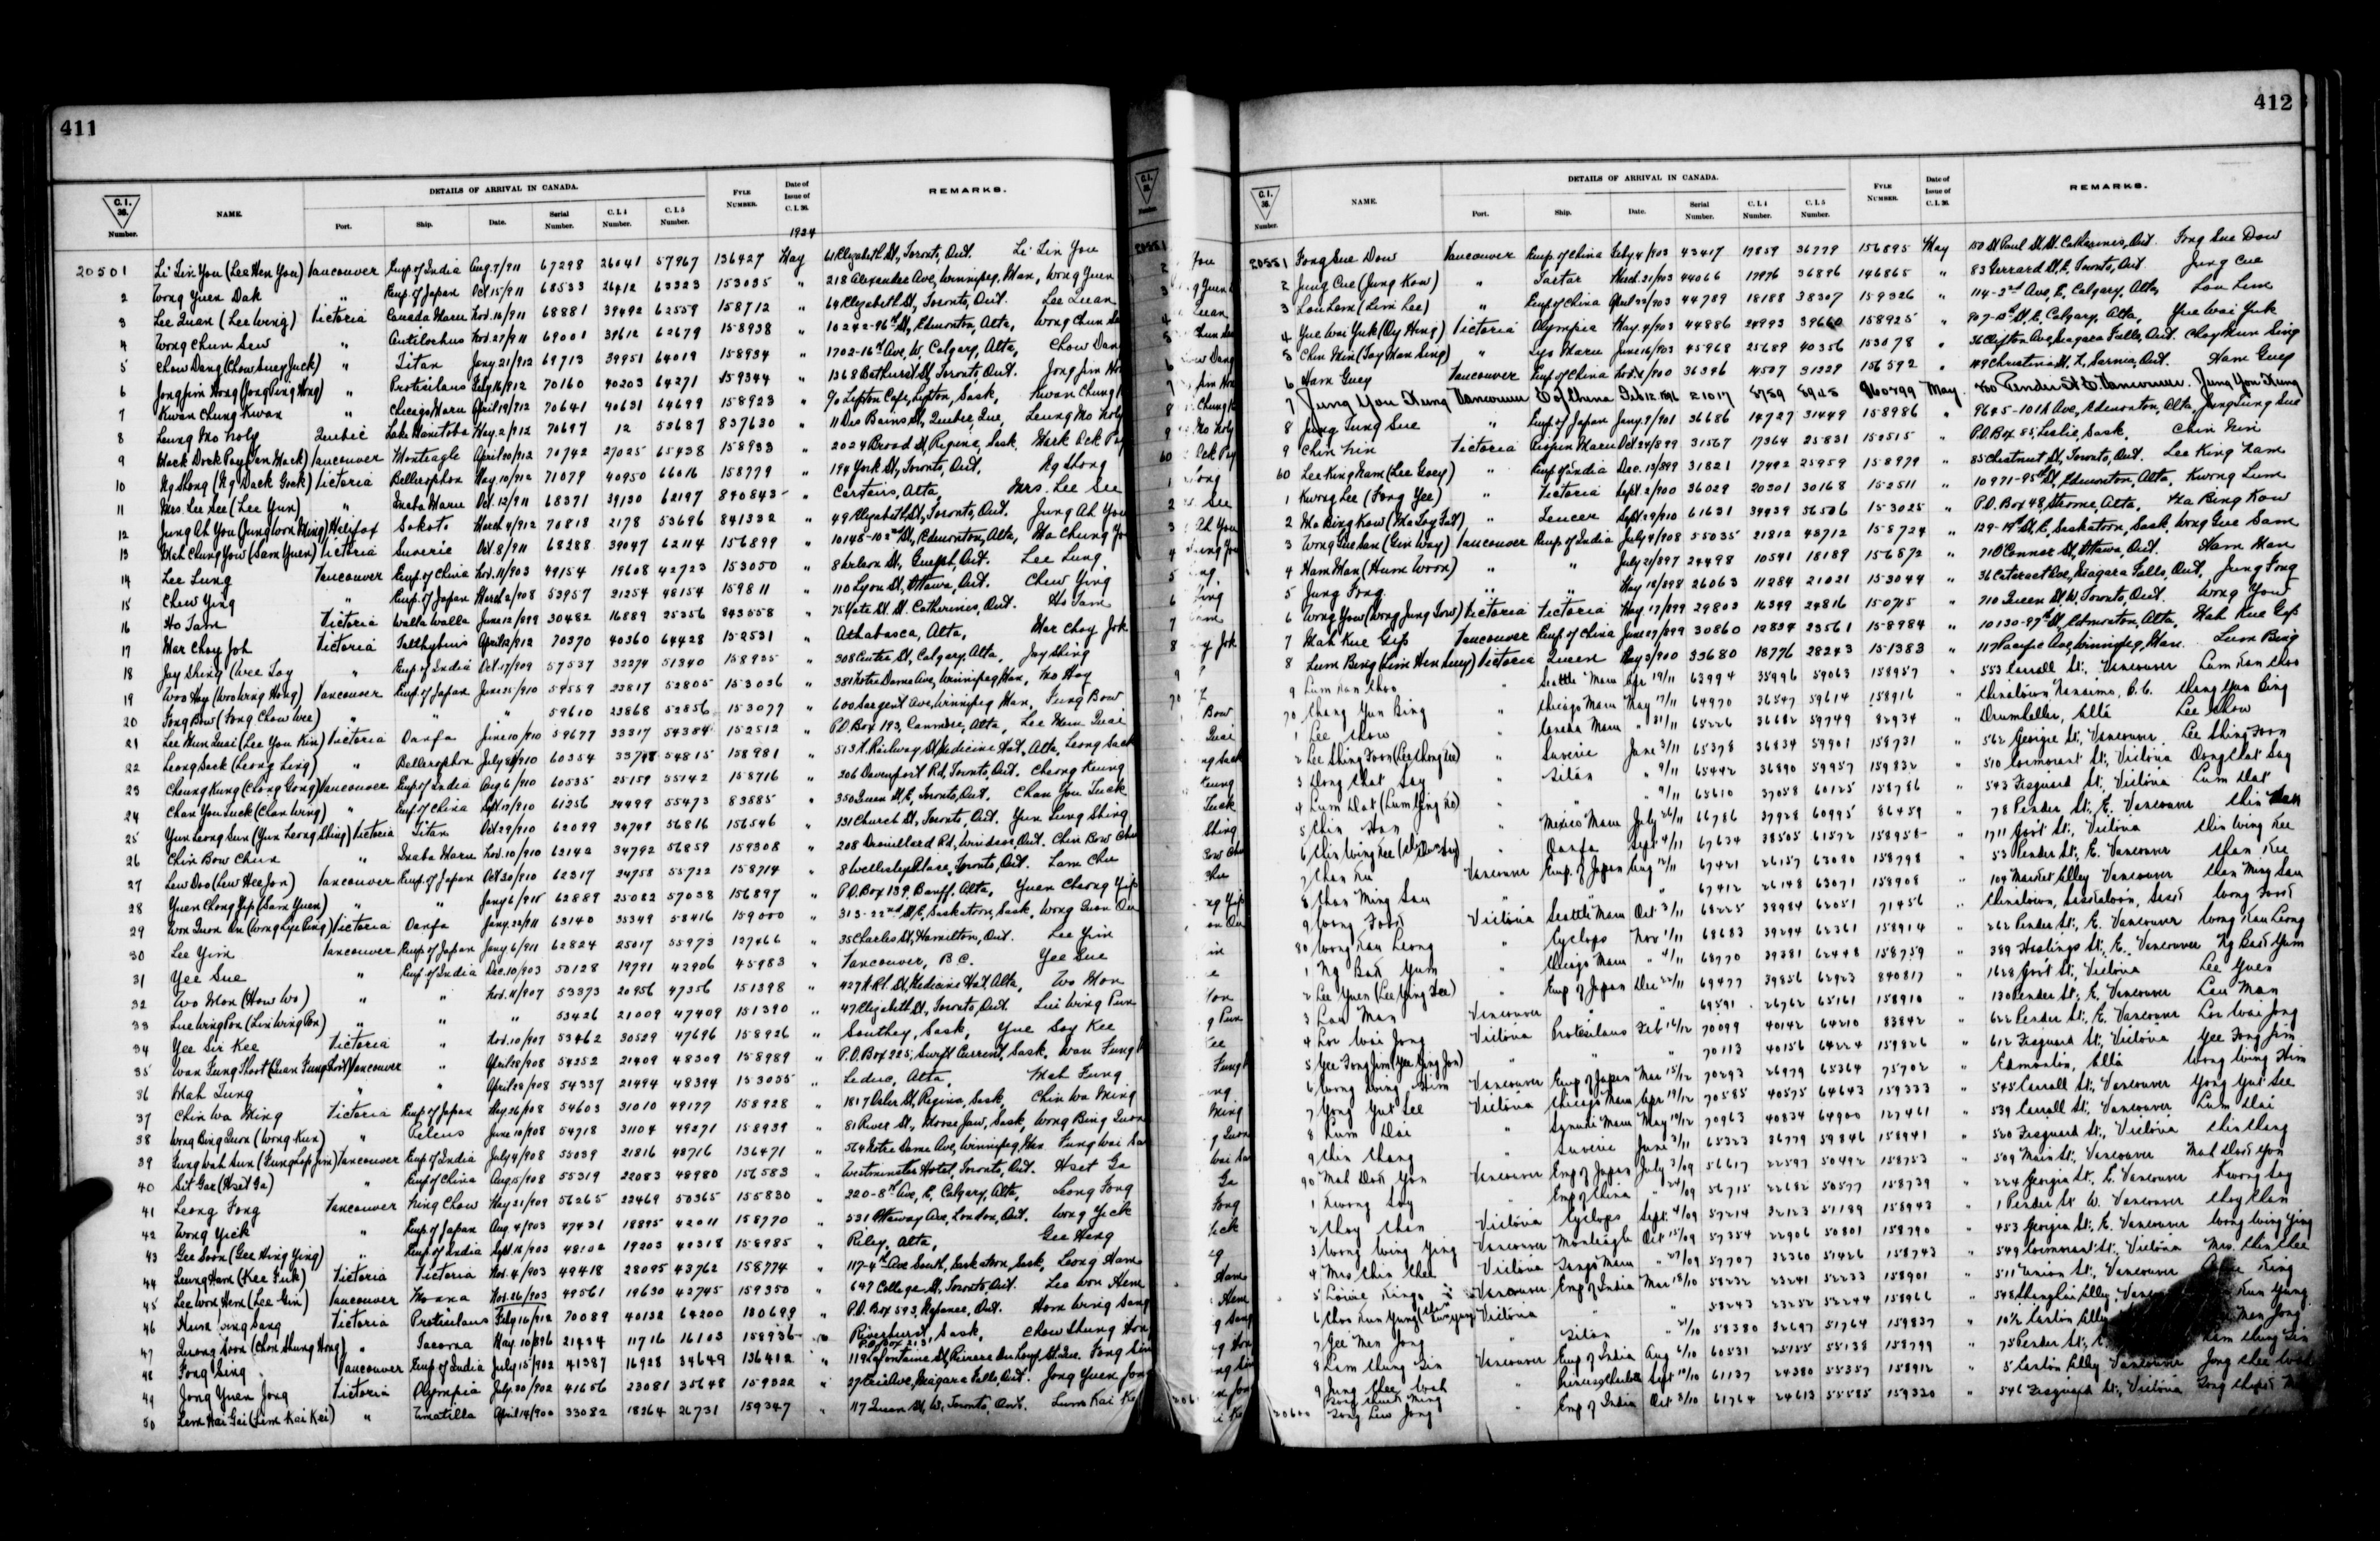 411
C.I. 36. Number.
NAME.
DETAILS OF ARRIVAL IN CANADA.
Port. Ship. Date. Serial Number. C.I.4 Number. C.I.5 Number.
FYLE NUMBER.
Date of Issue of C.I.36.
REMARKS.
1924
20501 Li Lin You (Lee Hen You) Vancouver Emp of India Aug. 7/911 67298 26041 57967 136927 May 61 Elizabeth St, Toronto, Ont. Li Lin You
2 Wong Yuen Dak " Emp. of Japan Oct 15/911 68533 26412 63323 153035 " 218 Alexander Ave, Winnipeg, Man, Wong Yuen
3 Lee Quan (Lee Wing) Victoria Canada Maru Nov. 16/911 68881 39492 62559 158712 " 64 Elizabeth St, Toronto, Ont. Lee Quan
4 Wong Chun Sew " Antilochus Nov. 27/911 69001 39612 62679 158938 " 10242-96th St, Edmonton, Alta, Wong Chun
5 Chow Dang (Chow Suey Juck) " Titan Jany. 21/912 69713 39951 64019 158934 " 1702-16th Ave, W. Calgary, Alta, Chow Dan
6 Jong Jim Hong (Jong Ping Hong) " Protesilaus Feby 16/912 70160 40203 64271 159344 " 1368 Bathurst St, Toronto, Ont. Jong Jim
7 Kwan Chung Kwan " Chicago Maru April 19/912 70641 40631 64699 158923 " c/o Lipton Cafe, Lipton, Sask, Kwan Chung
8 Leung Mo Holy Quebec Lake Manitoba May. 2/912 70697 12 53687 837630 " 11 Des Bains St, Quebec, Que, Leung Mo Holy
9 Mack Dock Pay (Jan Mack) Vancouver Monteagle April 20/912 70742 27025 65438 158933 " 2024 Broad St, Regina, Sask. Mark Ack Pay
10 Ng Shong (Ng Dack Gook) Victoria Bellerophon May. 10/912 71079 40950 66016 158779 " 194 York St, Toronto, Ont. Ng Shong
11 Mrs. Lee See (Lee Yun) " Inaba Maru Oct. 12/911 68371 39130 62197 840843 " Carstairs, Alta, Mrs. Lee See
12 Jung Ah You (Jung Won Ming) Halifax Sokoto March 4/912 70818 2178 53696 841332 " 49 Elizabeth St, Toronto, Ont. Jung Ah You
13 Mah Chung You (Sam Yuen) Victoria Suveric Oct. 8/911 68288 39047 62114 156899 " 10148-102nd St, Edmonton, Alta, Ma Chung
14 Lee Lung Vancouver Emp. of China Nov. 11/903 49154 19608 42723 153050 " 8 Nelson St, Guelph, Ont. Lee Lung
15 Chew Ying " Emp. of Japan March 2/908 53957 21254 48154 159811 " 110 Lyon St, Ottawa, Ont. Chew Ying
16 Ho Tam Victoria Walla Walla June 12/899 30482 16889 25356 843558 " 75 Yate St. St. Catherines, Ont. Ho Tam
17 Mar Choy Joh Victoria Talthybius April 12/912 70370 40360 64428 152531 " Athabasca, Alta, Mar Choy Jok
18 Jay Shing (Wee Loy " Emp of India Oct. 17/909 57537 32274 51340 158935 " 308 Centre St, Calgary, Alta, Jay Shing
19 Woo Hay (Woo Wing Hong) Vancouver Emp. of Japan June 25/910 59559 23817 52805 153036 " 381 Notre Dame Ave, Winnipeg, Man, Mo Hoy
20 Fong Bow (Fong Chow Wee) " " " 59610 23868 52856 153079 " 600 Sargent Ave, Winnipeg Man, Fung Bow
21 Lee Hun Quai (Lee You Kin) Victoria Oanfa June 10/910 59677 33317 54384 152512 " P.O. Box 193, Canmore, Alta, Lee Hun Quai
22 Leong Sack (Leong Ling) " Bellerophon July 8/910 60354 33748 54815 158981 " 513 N. Railway St, Medicine Hat, Alta, Leong Sack
23 Cheung Kung (Chong Gong) Vancouver Emp of India Aug. 6/910 60535 25159 55142 158716 " 206 Davenport Rd, Toronto, Ont. Cheong Keung
24 Chan You Luck (Chan Wing) " Emp of China Sept. 17/910 61256 24499 55473 83885 " 350 Queen St, E, Toronto, Ont. Chan You Luck
25 Yun Leong Sun (Yun Leong Shing) Victoria Titan Oct 29/910 62099 34749 56816 156546 " 131 Church St, Toronto, Ont. Yun Lung Shing
26 Chin Bow Chun " Inaba Maru Nov. 10/910 62142 34792 56859 159308 " 208 Drouillard Rd, Windsor, Ont. Chin Bow Chu
27 Lew Doo (Lew Hee Jon) Vancouver Emp. of Japan Oct 30/910 62317 24758 55722 158714 " 8 Wellesley Place, Toronto, Ont. Lam Chu
28 Yuen Chong Yip (Sam Yuen) " " Jany 6/911 62889 25082 57038 156897 " P.O. Box 139, Banff, Alta, Yuen Cheong Yip
29 Won Quon On (Wong Lye Ping) Victoria Oanfa Jany. 22/911 63140 35349 58416 159000 " 313-22nd St, E, Saskatoon, Sask, Wong Quon On
30 Lee Yim Vancouver Emp of Japan Jany 6/911 62824 25017 55973 127466 " 35 Charles St, Hamilton, Ont. Lee Yim
31 Yee Sue " Emp. of India Dec. 10/903 50128 19791 42906 45983 " Vancouver, B.C. Yee Sue
32 Wo Mon (How Wo) " " Nov. 11/907 53373 20956 47356 151398 " 427 N. Rl. St, Medicine Hat, Alta, Wo Mon
33 Lue Wing Pon (Lin Wing Pon) " " " 53426 21009 47409 151390 " 47 Elizabeth St, Toronto, Ont. Lui Wing Pun
34 Yee Sir Kee Victoria " Nov. 10/907 53462 30529 47696 158926 " Southey, Sask, Yue Soy Kee
35 Wan Fung Shoot (Quan Fung Shoot) Vancouver " April 28/908 54252 21409 48309 158989 " P.O. Box 225, Swift Current, Sask. Wan Fung
36 Mah Tung " " April 28/908 54337 21494 48394 153035 " Leduc, Alta, Mah Fung
37 Chin Wa Ming Victoria Emp of Japan May. 26/908 54603 31010 49177 158928 " 1817 Osler St, Regina, Sask, Chin Wa Ming
38 Wong Bing Quon (Wong Kun) " Peleus June 10/908 54718 31104 49271 158939 " 81 River St, Moose Jaw, Sask, Wong Bing Quon
39 Fung Wah Sun (Fung Lip Jim) Vancouver Emp of India July 4/908 55039 21816 48716 136471 " 564 Notre Dame Ave, Winnipeg, Man. Fung Wai
40 Sit Gar (Hset Ga) " Emp of China Aug. 15/908 55319 22083 48980 156583 " Westminster Hotel, Toronto, Ont. Hset Ga
41 Leong Fong Vancouver Ning Chow May 21/909 56265 22469 50365 155830 " 220-8th Ave, E, Calgary, Alta, Leong Fong
42 Wong Yick " Emp of Japan Aug. 4/903 47431 18895 42011 158770 " 531 Ottaway Ave, London, Ont. Wong Yick
43 Gee Soon (Gee Hing Ying) " Emp of India Sept. 16/903 48102 19203 40318 158985 " Riley, Alta, Gee Heng
44 Leung Ham (Kee Fuk) Victoria Victoria Nov. 4/903 49418 28095 43762 158774 " 117-4th Ave South, Saskatoon, Sask, Leong Ham
45 Lee Won Hem (Lee Gin) Vancouver Moana Nov. 26/903 49561 19630 42745 159350 " 647 College St, Toronto, Ont. Lee Won Hem
46 Hum Wing Sang Victoria Protesilaus Feby 16/912 70089 40132 64200 180699 " P.O. Box 593, Napanee, Ont. Hom Wing Sang
47 Quong Soon (Chow Shung Hong) " Tacoma May. 10/896 21434 11716 16103 158936 " Riverhurst, Sask, P.O. Box 213 Chow Shung Hon
48 Fong Sing Vancouver Emp of India July 15/902 41387 16928 34649 136412 " 119 Lafontaine St, Riviere du Loup St. Que. Fong Sin
49 Jong Yuen Jong Victoria Olympia July. 30/902 41656 23081 35648 159322 " 27 Erie Ave, Niagara Falls, Ont. Jong Yuen Jon
50 Lem Hai Gai (Lim Kai Kei) " Umatilla April 14/900 33082 18264 26731 159347 " 117 Queen St, W, Toronto, Ont. Lum Kai
412
C.I. 36. Number.
NAME.
DETAILS OF ARRIVAL IN CANADA.
Port. Ship. Date. Serial Number. C.I.4 Number. C.I.5 Number.
FYLE NUMBER.
Date of Issue of C.I.36.
REMARKS.
20551 Fong Sue Dow Vancouver Emp. of China Feby 4/903 43417 17859 36779 156895 May 150 St Paul St. St. Catherines, Ont. Fong Sue Dow
2 Jung Cue (Jung Kow) " Tartar March. 21/903 44066 17976 36896 146865 " 83 Gerrard St, E, Toronto, Ont. Jung Cue
3 Lou Lem (Lim Lee) " Emp of China April 22/903 44789 18188 38307 159326 " 114-3rd Ave, E, Calgary, Alta, Lou Lem
4 Yue Wai Yuk (Oy Hing) Victoria Olympia May. 4/903 44886 24993 39660 158925 " St, E, Calgary, Alta, Yue Wai Yuk
5 Chin Min (Jay Man Sing) " Lyo Maru June 16/903 45968 25689 40356 153078 " 36 Clifton Ave, Niagara Falls, Ont. Choy Mun Sing
6 Ham Guey Vancouver Emp of China Nov. 2/900 36396 14507 31229 156592 " 149 Christina St. N, Sarnia, Ont. Ham Guey
7 Jung You Fung Vancouver E of China Feb 12. 1896 21017 8759 8945 960799 May Pender St E Vancouver. Jung You Fung
8 Jung Sung Sue " Emp of Japan Jany. 9/901 36686 14727 31449 158986 " 9645-101A Ave, Edmonton, Alta, Jung Sung Sue
9 Chin Nin Victoria Riojun Maru Oct 24/899 31567 17364 25831 152515 " P.O. Box 85, Leslie, Sask. Chin Nin
60 Lee King Nam (Lee Goey) " Emp of India Dec. 13/899 31821 17492 25959 158979 " 85 Chestnut St, Toronto, Ont. Lee King Nam
1 Kwong Lee (Fong Yee) " Victoria Sept. 2/900 36029 20301 30168 152511 " 10971-95th St, Edmonton, Alta, Kwong Lum
2 Ma Bing Kow (Ma Loy Fatt) " Teucer Sept. 29/910 61631 34439 56506 153025 " P.O. Box 48, Strome, Alta, Ma Bing Kow
3 Wong Gue San (Gin Way) Vancouver Emp of India July 4/908 55035 21812 48712 158724 " 129-19th St, E, Saskatoon, Sask, Wong Gue Sam
4 Ham Man (Hum Woon) " " July 21/897 24498 10541 18189 156872 " 71 O'Connor St, Ottawa, Ont. Ham Man
5 Jung Fong " " May 18/898 26063 11284 21021 153044 " 36 Cataract Ave, Niagara Falls, Ont, Jung Fong
6 Wong You (Wong Jung Sow) Victoria Victoria May. 17/899 29803 16349 24816 150715 " 710 Queen St, W, Toronto, Ont. Wong You
7 Mah Kue Gip Vancouver Emp of China June 27/899 30860 12834 23561 158984 " 10130-97th St, Edmonton, Alta, Mah Kue Gip
8 Lum Bing (Lim Hen Suey) Victoria Queen May 3/900 33680 18776 28243 151383 " 117 Pacific Ave, Winnipeg, Man. Lum Bing
9 Lum Kan Choo " Seattle Maru Apr 19/11 63994 35996 59063 158957 " 553 Carrall St., Vancouver Lum Kan Choo
70 Chang Yun Bing " Chicago Maru May 17/11 64970 36547 59614 158916 " Chinatown, Nanaimo, B.C. Chang Yun Bing
1 Lee Chow " Canada Maru " 31/11 65226 36682 59749 82934 " Drumheller, Alta Lee Chow
2 Lee Shing Foon (Lee Chong Lee) " Suveric June 3/11 65378 36834 59901 158731 " 562 Georgia St., Vancouver Lee Shing Foon
3 Dong Chat Say " Titan " 9/11 65442 36890 59957 159832 " 510 Cormorant St., Victoria Dong Chat Say
4 Lum Dat (Lum Ying Ko) " " " 9/11 65610 37058 60125 158786 " 543 Fisguard St., Victoria Lum Dat
5 Chin Han " Mexico Maru July 26/11 66786 37928 60995 86459 " 78 Pender St., E. Vancouver Chin Han
6 Chin Wing Kee " Oanfa Sept. 4/11 67634 38505 61572 158958 " 1711 Gov't St., Victoria Chin Wing Kee
7 Chan Ku Vancouver Emp. of Japan Aug 12/11 67421 26157 63080 158798 " 53 Pender St., E. Vancouver Chan Kee
8 Chan Ming Sau " " " 67412 26148 63071 158908 " 109 Market Alley Vancouver Chan Ming Sau
9 Wong Food Victoria Seattle Maru Oct 3/11 68225 38984 62051 71456 " Chinatown, Saskatoon, Sask Wong Food
80 Wong Kau Leong " Cyclops Nov 1/11 68683 39294 62361 158914 " 262 Pender St., E. Vancouver Wong Kau Leong
1 Ng Back Yum " Chicago Maru " 4/11 68770 39381 62448 158759 " 389 Hastings St., E. Vancouver Ng Back Yum
2 Lee Yuen (Lee Ying Lee) " Emp of Japan Dec 22/11 69477 39856 62923 840817 " 1628 Gov't St., Victoria Lee Yuen
3 Lau Man Vancouver " " 69591 26762 65161 158910 " 130 Pender St., E. Vancouver Lau Man
4 Lor Wai Jong Victoria Protesilaus Feb 16/12 70099 40142 64210 83842 " 622 Pender St., E. Vancouver Lor Wai Jong
5 Yee Fong Jim (Yee Bing Jon) " " " 70113 40156 64224 159826 " 612 Fisguard St., Victoria Yee Fong Jim
6 Wong Wing Him Vancouver Emp of Japan Mar 15/12 70293 26979 65364 75702 " Edmonton, Alta Wong Wing Him
7 Yong Yut See Victoria Chicago Maru Apr 19/12 70585 40575 64643 159333 " 545 Carrall St., Vancouver Yong Yut See
8 Lum Dai " Maru May 10/12 70963 40834 64900 127461 " 539 Carrall St., Vancouver Lum Dai
9 Chin Chang " Suveric June 3/11 65323 36779 59846 158941 " 520 Fisguard St., Victoria Chin Chang
90 Mah Dock Yon Vancouver Emp of Japan July 3/09 56617 22597 50492 158753 " 509 Main St., Vancouver Mah Dock Yon
1 Kwong Soy " Emp of China " 24/09 56715 22682 50577 158739 " 224 Georgia St., E. Vancouver Kwong Soy
2 Choy Chan Victoria Cyclops Sept. 4/09 57214 32123 51189 158943 " 1 Pender St. W. Vancouver Choy Chan
3 Wong Wing Ying Vancouver Monteagle Oct 15/09 57354 22906 50801 158790 " 453 Georgia St., E. Vancouver Wong Wing Ying
4 Mrs Chin Chee Victoria Tango Maru " 27/09 57707 32360 51426 158743 " 549 Cormorant St., Victoria Mrs. Chin Chee
5 Louie King Vancouver Emp of India Mar 18/10 58232 23241 52233 158901 " 511 Union St., Vancouver King
6 Choo Kun Yung Victoria " " 58243 23252 52244 158966 " 548 Shanghai Alley Kun Yung
7 Yee Men Jong " Titan " 21/10 58380 32697 51764 159837 " 10½ Canton Alley Men Jong
8 Lam Chung Gin Vancouver Emp of India Aug 6/10 60531 25155 55138 158799 " 75 Pender St., Lam Chung Gin
9 Jung Chee Wah " Sept 10/10 61137 24380 55357 158912 " 5 Canton Alley Vancouver Jong Chee Wah
20600 Fong Lew Jong " Emp of India Oct 3/10 61764 24613 55585 159320 " 546 Fisguard St., Victoria